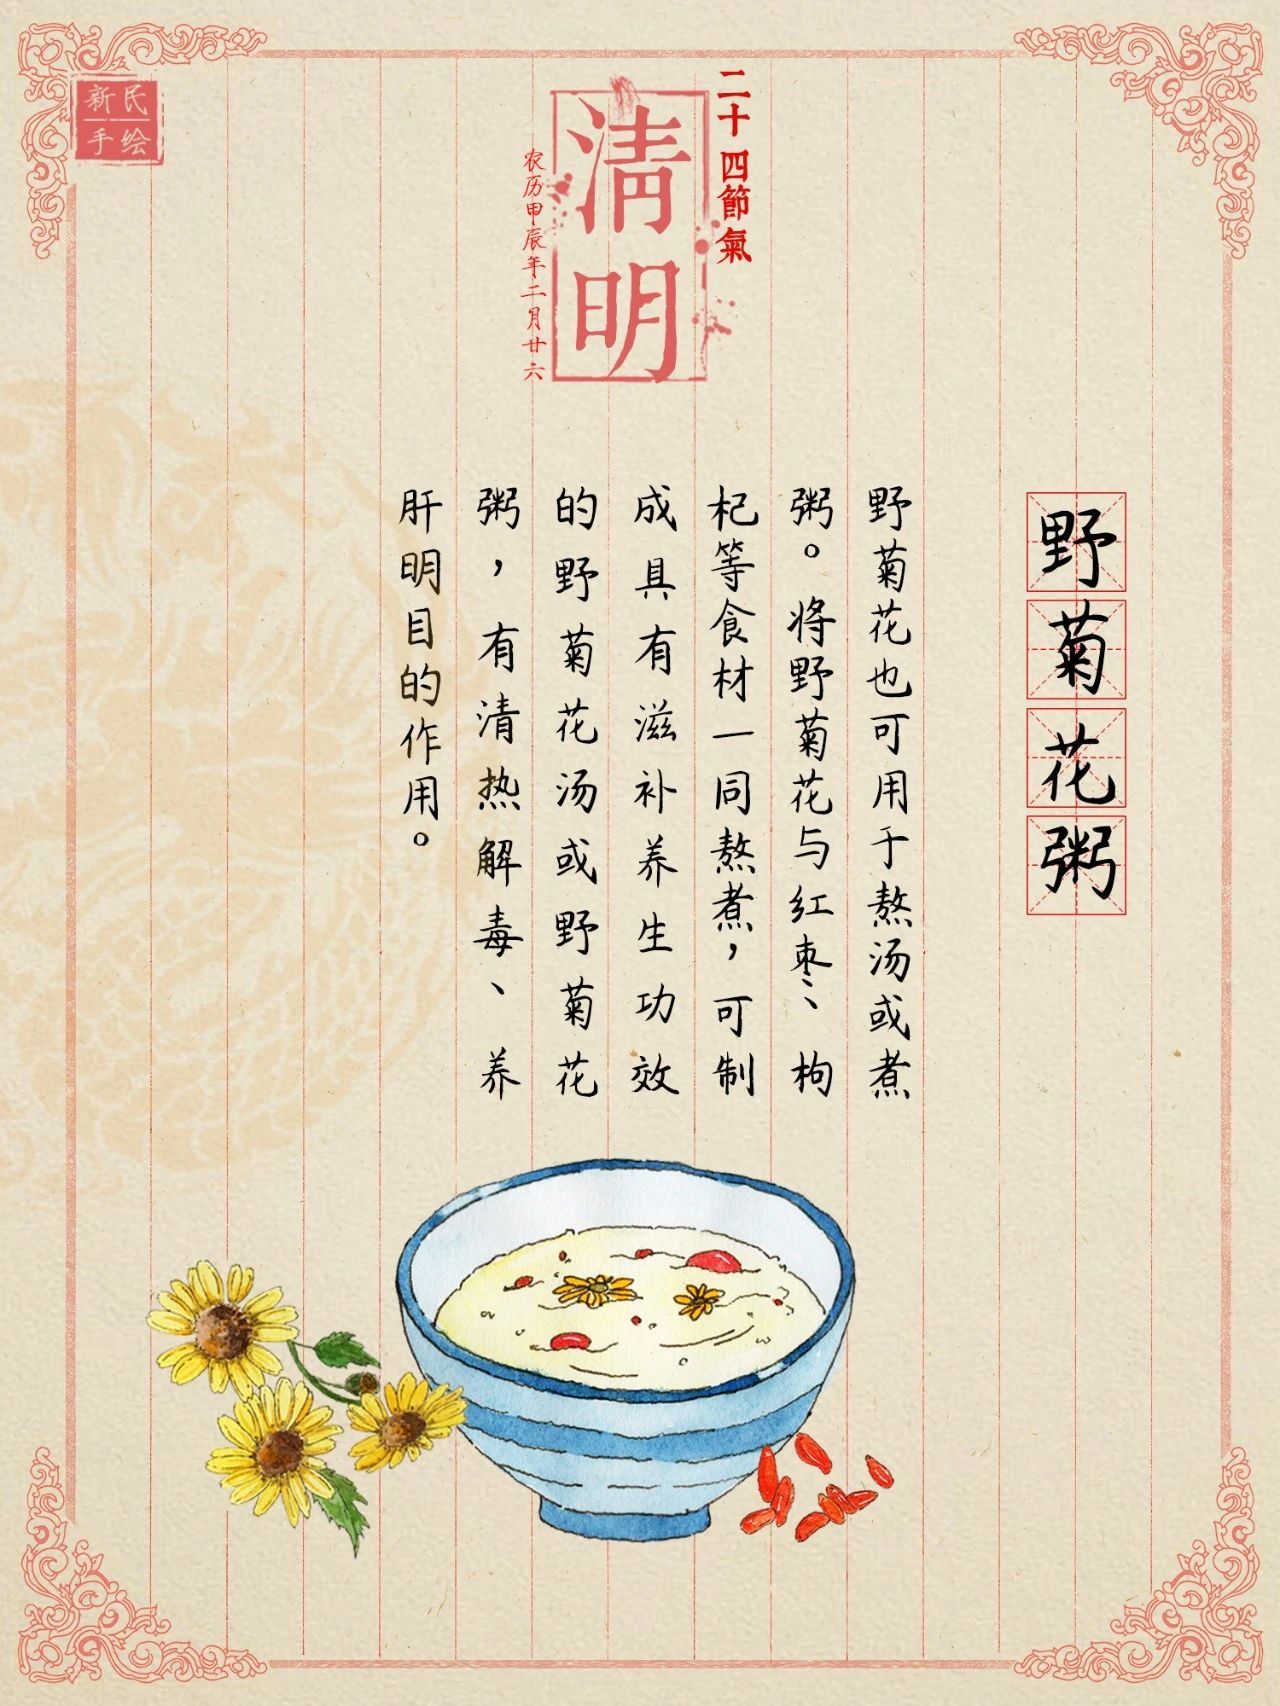 新民
手绘
二十四節氣
清明
农历甲辰年二月廿六
野菊花粥
野菊花也可用于熬汤或煮
粥。将野菊花与红枣、枸
杞等食材一同熬煮，可制
成具有滋补养生功效
的野菊花汤或野菊花
粥，有清热解毒、养
肝明目的作用。